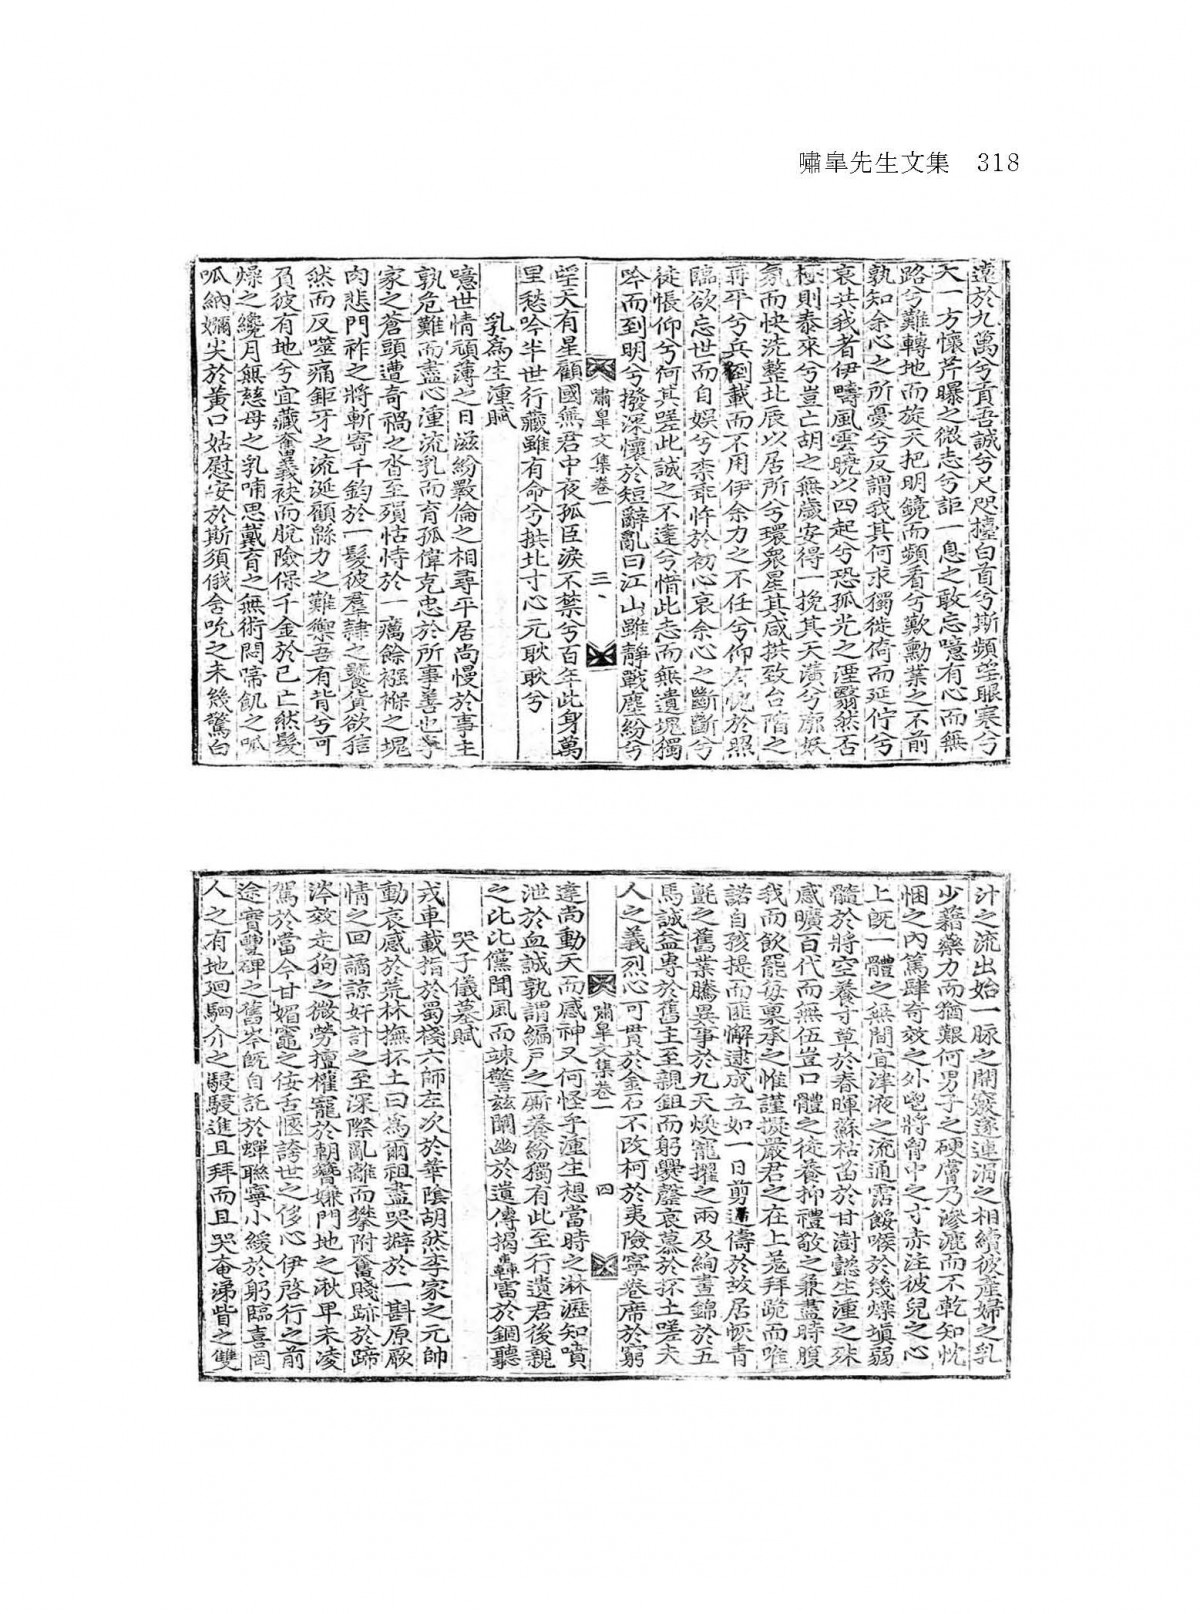 嘯皐先生文集 318
遠於九萬兮貢吾誠兮尺咫擡白首兮斯頻望眼寒兮
天一方懷芹曝之微志兮詎一息之敢忘噫有心而無
路兮難轉地而旋天把明鏡而頻看兮歎勳業之不前
孰知余心之所憂兮反謂我其何求獨徙倚而延佇兮
哀共我者伊疇風雲曉以四起兮恐孤光之湮翳然否
極則泰來兮豈亡胡之無歲安得一挽其天潢兮廓妖
氛而快洗整北辰以居所兮環衆星其咸拱致台階之
再平兮兵倒載而不用伊余力之不任兮仰有愧於照
臨欲忘世而自娛兮柰乖忤於初心哀余心之斷斷兮
徒悵仰兮何其嗟此誠之不達兮惜此志而無遺塊獨
吟而到明兮撥深懷於短辭亂曰江山雖靜戰塵紛兮
嘯皐文集卷一 三
望天有星顧國無君中夜孤臣淚不禁兮百年此身萬
里愁吟半世行藏雖有命兮拱北寸心元耿耿兮
乳爲生湩賦
噫世情頑薄之日滋紛斁倫之相尋平居尚慢於事主
孰危難而盡心湩流乳而育孤偉克忠於所事善也李
家之蒼頭遭奇禍之沓至殞怙恃於一癘餘襁褓之塊
肉悲門祚之將斬寄千鈞於一髮彼羣隷之饕貨欲信
然而反噬痛鉅牙之流涎顧緜力之難禦吾有背兮可
負彼有地兮宜藏奮義袂而脫險保千金於已亡然髮
燥之纔月無慈母之乳哺思戴育之無術悶啼飢之呱
呱納嬭尖於黃口姑慰安於斯須俄舍吮之未幾驚白
汁之流出始一脉之開竅遂連涓之相續彼產婦之乳
少藉藥力而猶艱何男子之硬膚乃滲漉而不乾知忱
悃之內篤肆奇效之外鬯將胷中之寸赤注彼兒之心
上旣一體之無間宜津液之流通霑餒喉於幾燥塡弱
髓於將空養寸草於春暉蘇枯苗於甘澍懿生湩之殊
感曠百代而無伍豈口體之徒養抑禮敬之兼盡時腹
我而飲罷每稟承之惟謹擬嚴君之在上羌拜跪而唯
諾自孩提而匪懈逮成立如一日剪逋儔於故居恢靑
氈之舊業騰異事於九天煥寵擢之兩及絢晝錦於五
馬誠益專於舊主至親鉏而躬爨罄哀慕於抔土嗟夫
人之義烈心可貫於金石不改柯於夷險寧卷席於窮
嘯皐文集卷一 四
達尚動天而感神又何怪乎湩生想當時之淋瀝知噴
泄於血誠孰謂編戶之厮養紛獨有此至行遺君後親
之比比儻聞風而竦警玆闡幽於遺傳揭轟雷於錮聽
哭子儀墓賦
戎車載指於蜀棧六師左次於華陰胡然李家之元帥
動哀感於荒林撫抔土曰爲爾祖盡哭擗於一斟原厥
情之回譎諒奸計之至深際亂離而攀附奮賤跡於蹄
涔效走狗之微勞擅權寵於朝簪嫌門地之湫卑未凌
駕於當今甘媚竈之佞舌愜誇世之侈心伊啓行之前
途寶豐碑之舊岑旣自託於蟬聯寧小緩於躬臨喜罔
人之有地廻駟介之駸駸進且拜而且哭奄涕眥之雙